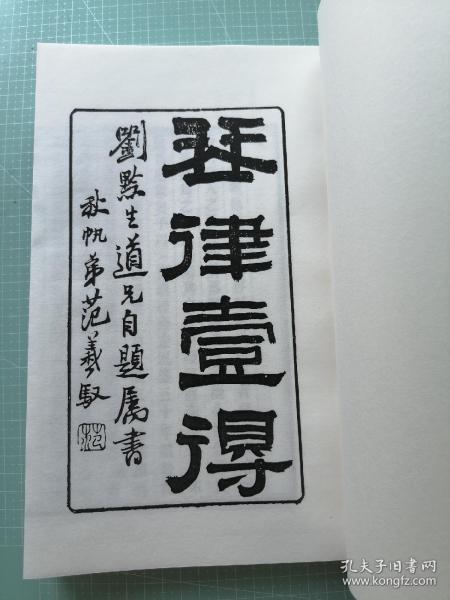 琴律壹得
劉黔生道兄自題属書
秋帆弟范羲馭
孔夫子旧书网
www.kongfz.com